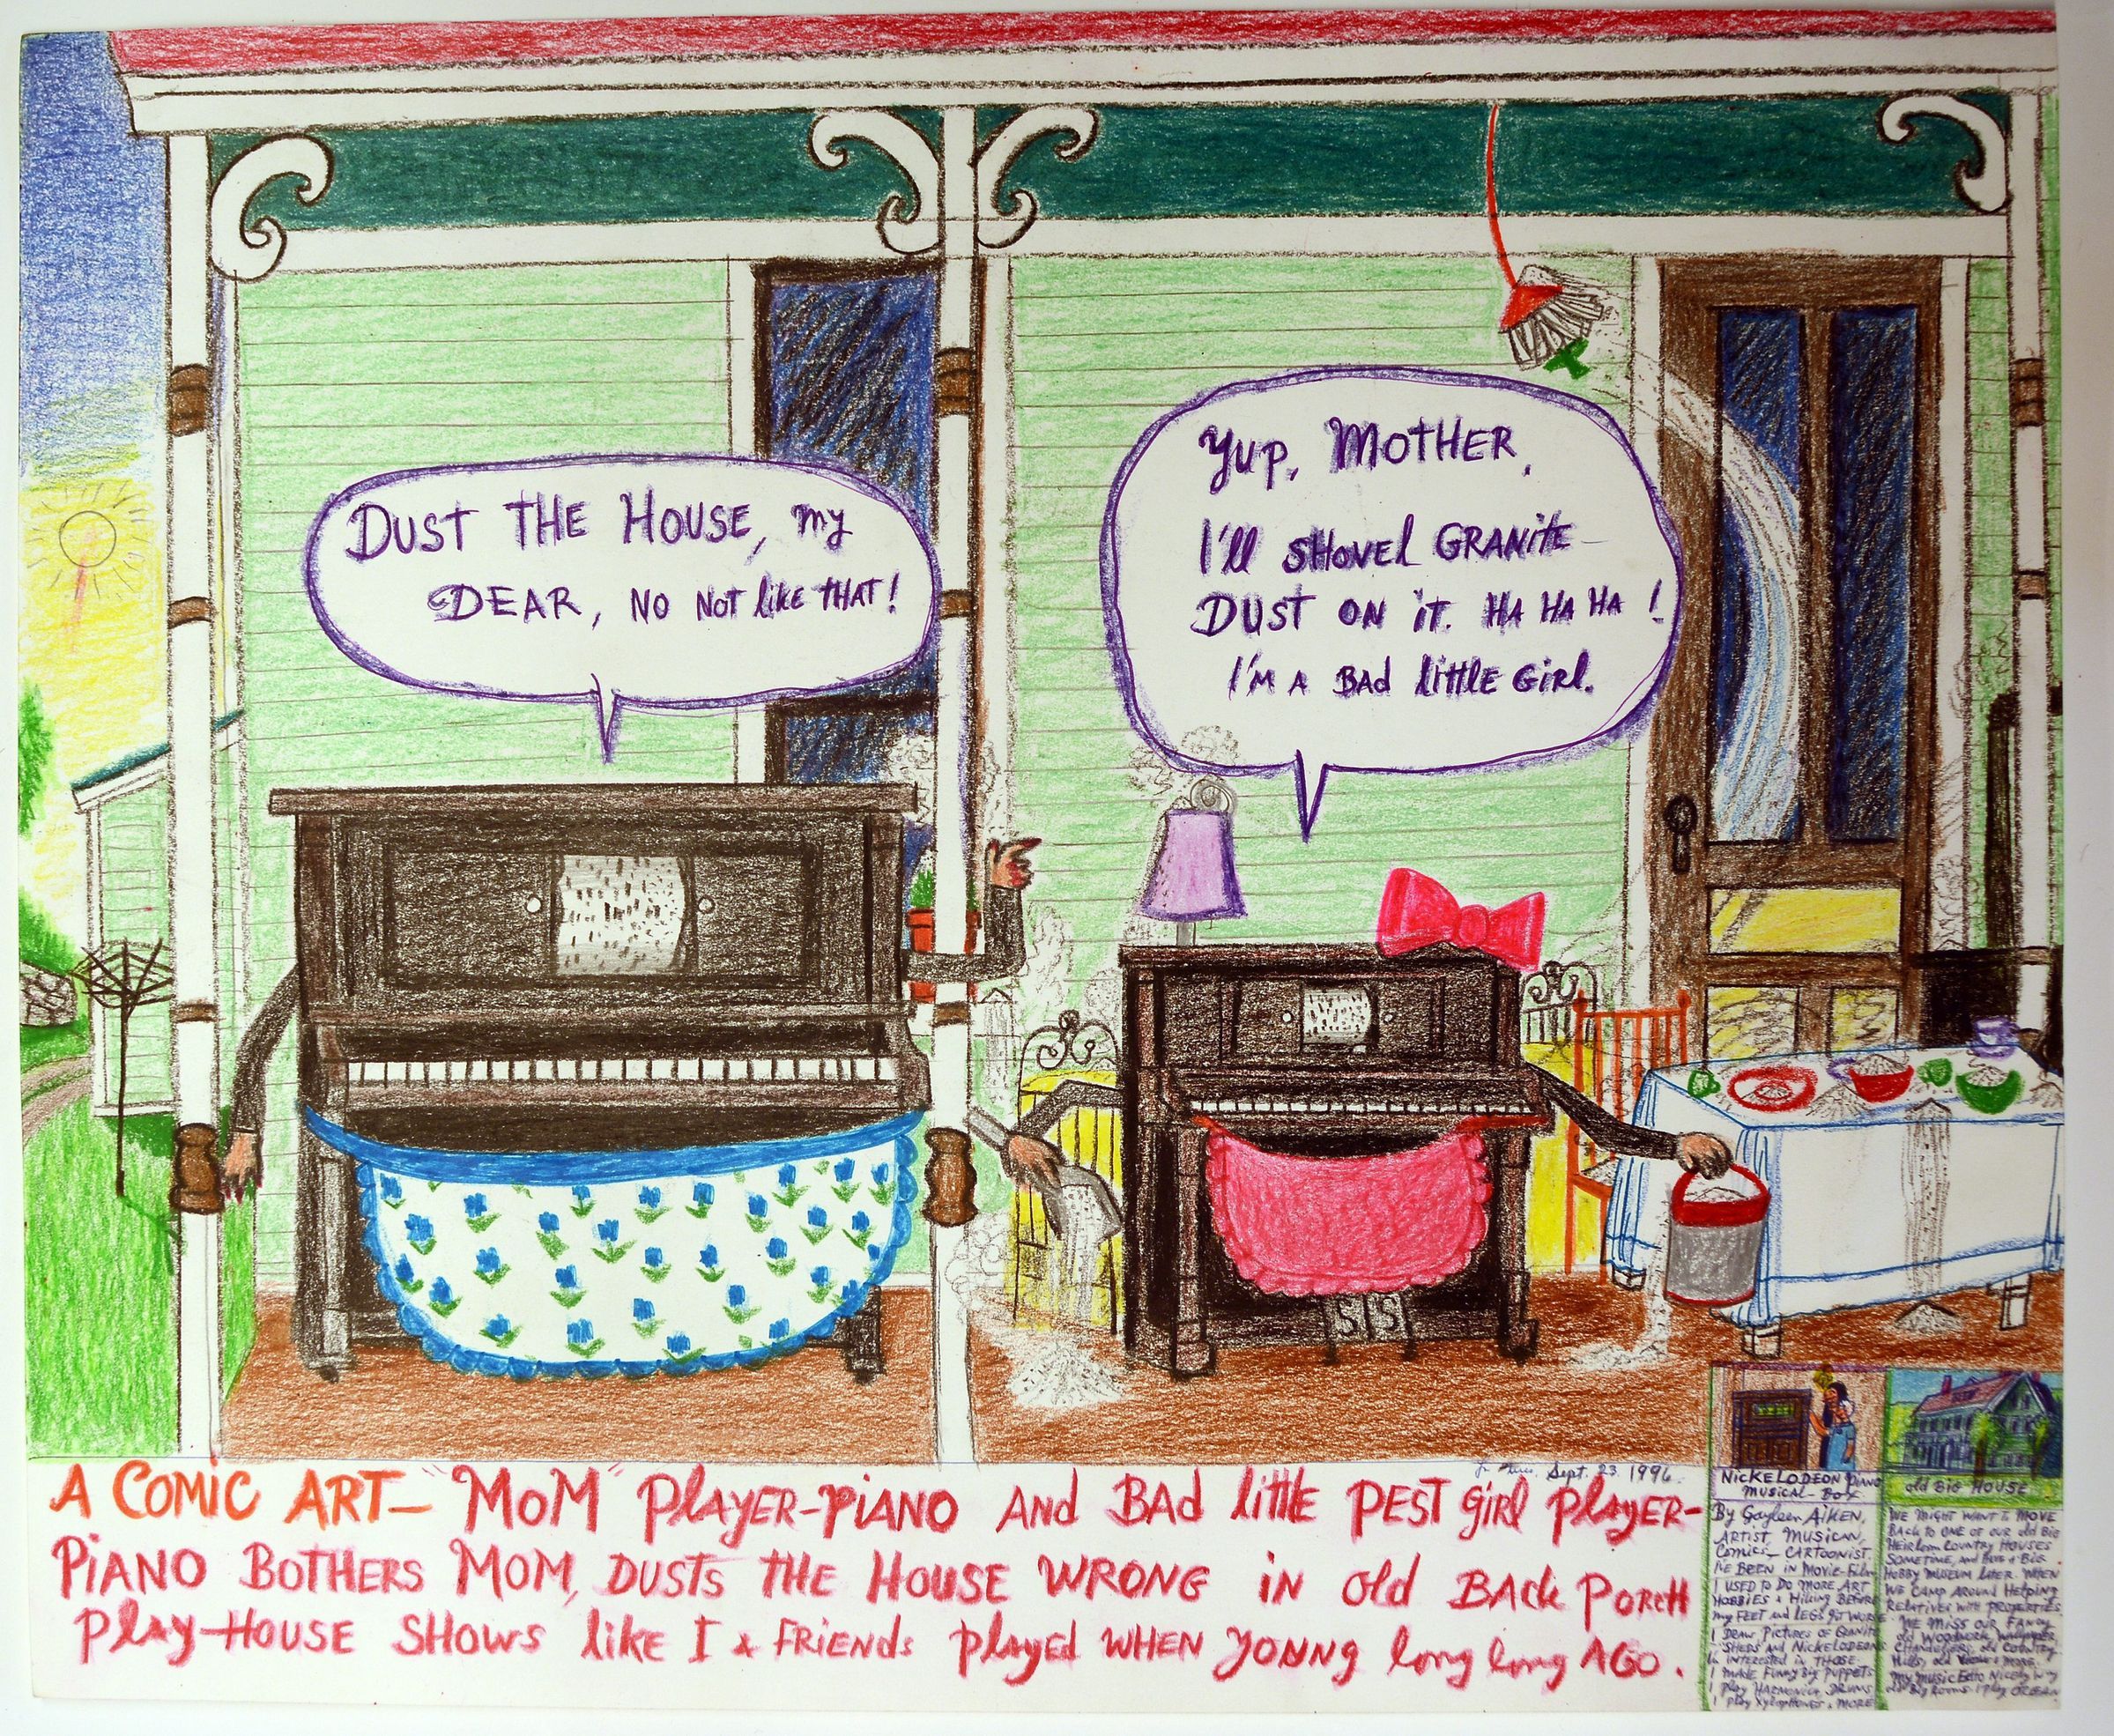 DUST THE HOUSE, my
DEAR, NO NOT likE THAT!
Yup, MOTHER,
I'll SHOVEl GRANitE-
DUST ON iT. HA HA HA !
I'M A BAd littlE GiRl.
Sept. 23. 1996.
A COMiC ART— "MOM" PlAyER-PiANO AND BAd littlE PEST GiRl PlAyER-
PiANO BOTHERS MOM, DUSTS THE HOUSE WRONG iN Old BAck PORCH
PlAy-HOUSE SHOWS likE I & FRiENds PlAyEd WHEN yOUNg lONg lONg AGO.
NiCKELODEON PiANO
MUSiCAL-BOX
By Gayleen AiKEN,
ARTiST, MUSiCAN,
COMiC- CARTOONiST.
I'VE BEEN iN MOViE-FilM
I USED TO DO MORE ART
HOBBiES & HiKiNG BEFORE
My FEET ANd LEGS GOT WORSE
I DRAW PiCTURES OF GRANiTE
SHEDS ANd NiCKELODEONS
iNTERESTED iN THOSE.
I MAKE FUNNY BiG PUPPETS
I Play HARMONiCA, DRUMS
I Play XylOPHONES & MORE
Old BiG HOUSE
WE MiGHT WANT To MOVE
BACK TO ONE OF OUR Old BiG
HEiRlOOM COUNTRY HOUSES
SOMETiME, ANd HAVE A BiG
HOBBY MUSEUM LATER. WHEN
WE CAMP AROUNd HElPiNG
RELATiVES WiTH PROPERTiES.
WE MiSS OUR FANCY
Old WOODWORK, WAllPAPER,
CHANDELiERS, Old COUNTRY
Hills, Old & MORE.
My MUSiC ECHO NiCEly iN My
Old BiG ROOMS. I Play ORGAN